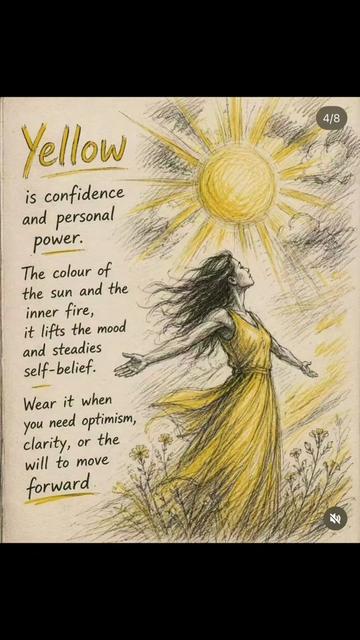 4/8
Yellow
is confidence
and personal
power.
The colour of
the sun and the
inner fire,
it lifts the mood
and steadies
self-belief.
Wear it when
you need optimism,
clarity, or the
will to move
forward